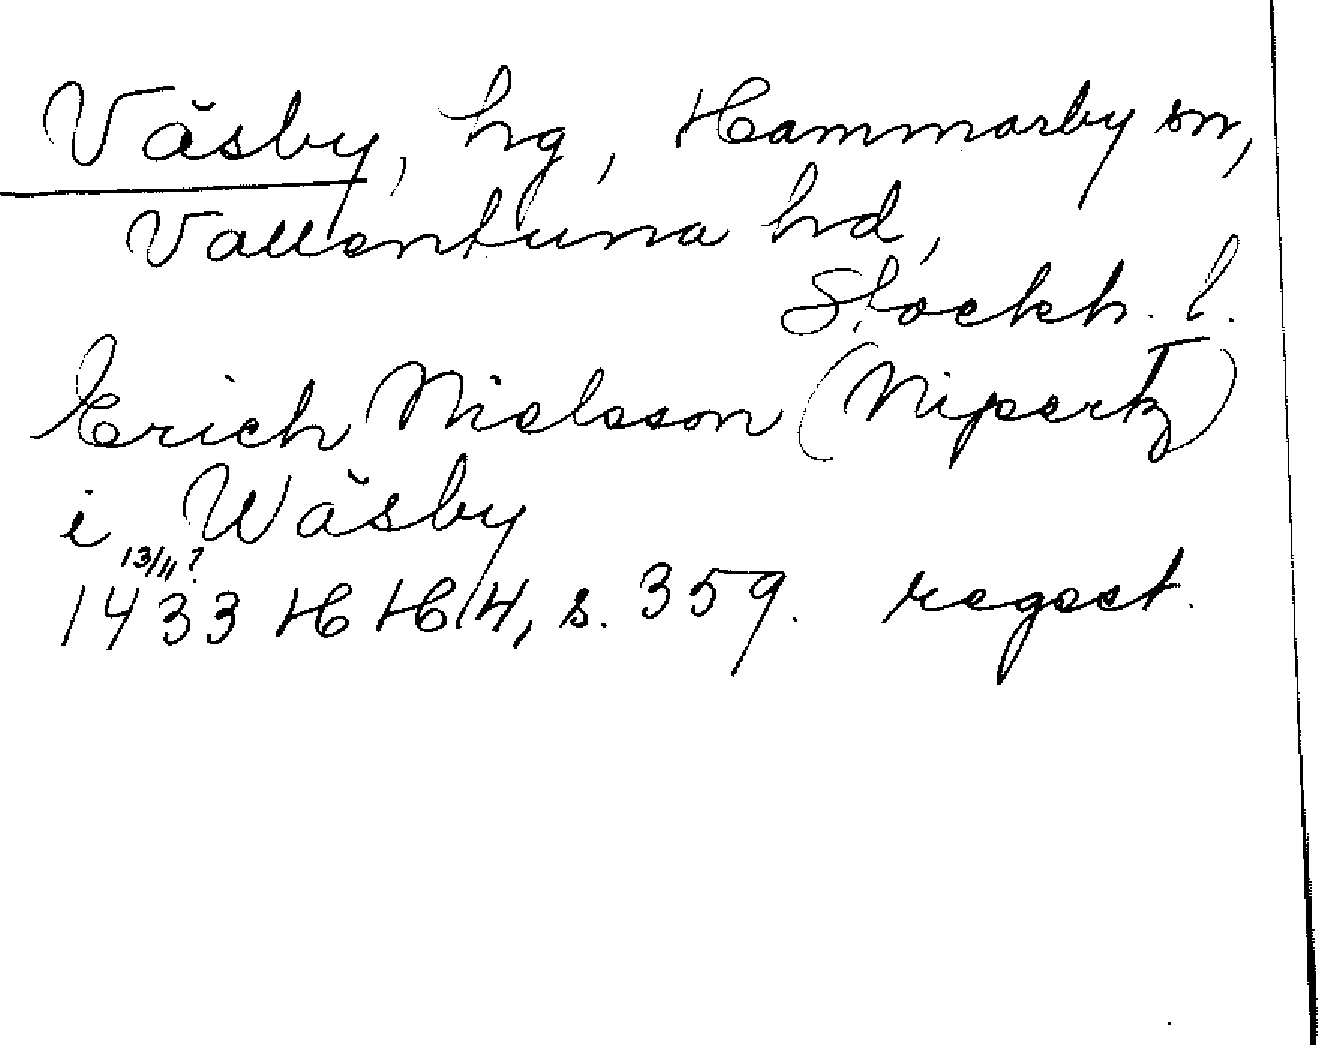 Väsby, hg, Hammarby sn,
Vallentuna hd,
Stockh. l.
Erich Nielsson (Nipertz)
i Wäsby
13/11?
1433 HH 14, s. 359. regest.